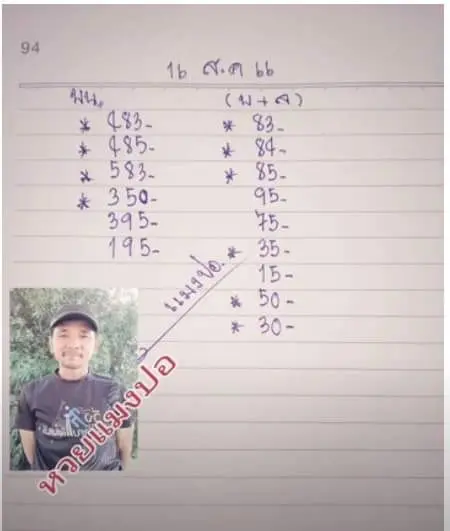 94
16 ส.ค 66
บน. (บ + ล)
* 483- * 83-
* 485- * 84-
* 583- * 85-
* 350- 95-
395- 75-
195- * 35-
15-
* 50-
* 30-
แมงปอ.
หวยแมงปอ